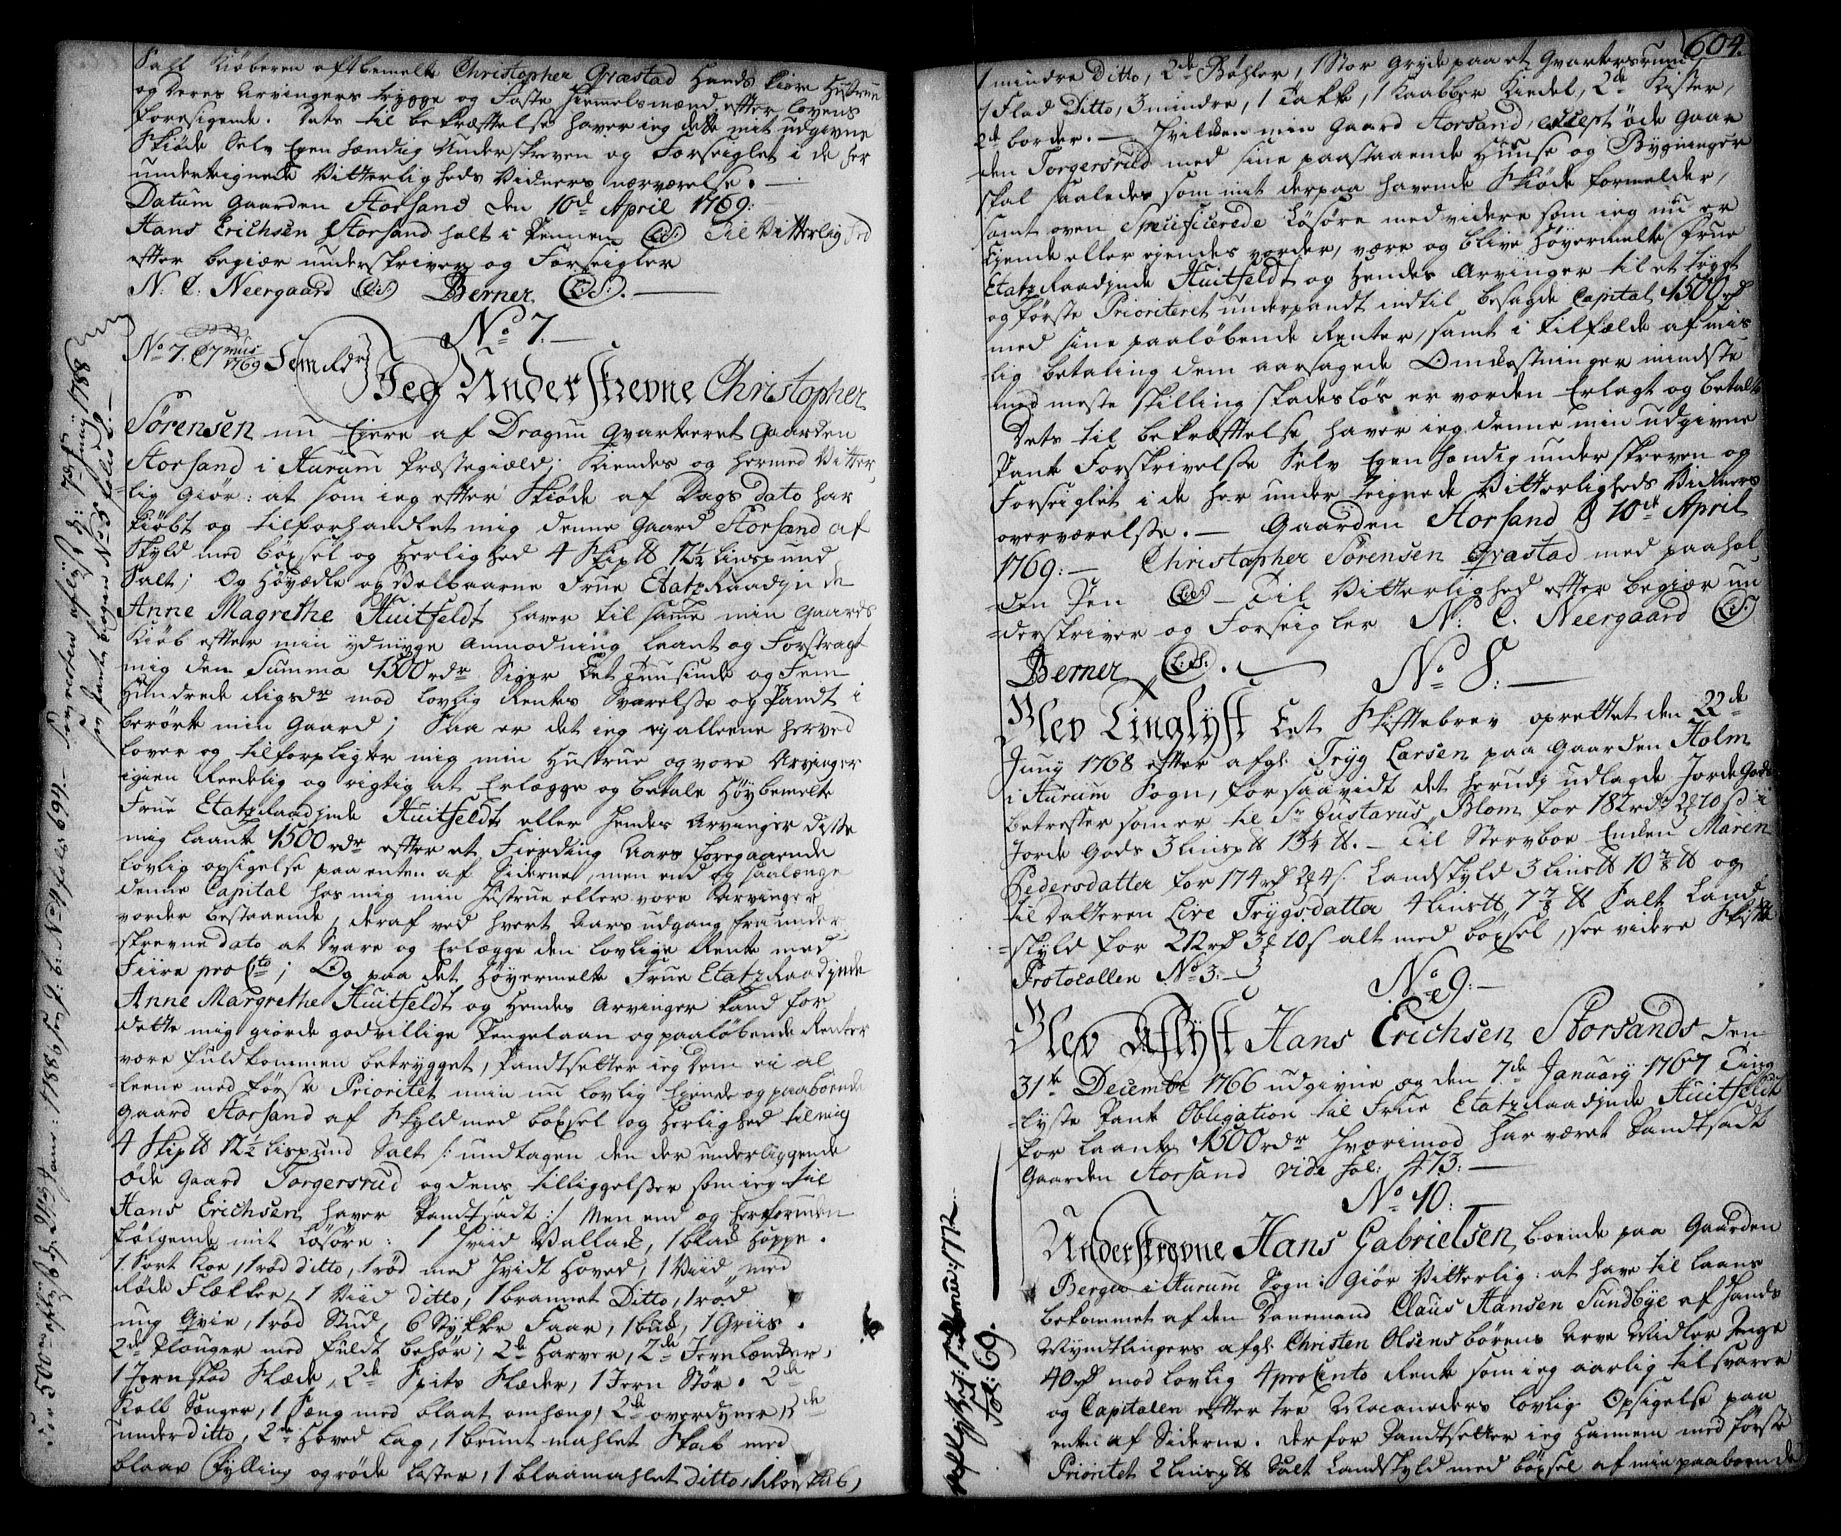 Skall Kiøberen oftbemelte Christopher Græstad Hands kiere Hustrue
og Deres Arvingers trygge og Faste Hiemelsmænd efter lovens
foresigende. Dets til bekræfftelse haver ieg dette mit udgivne
Skiøde Selv Egen hændig Underskreven og Forseiglet i de her
undertegnede Vitterligheds Vidners nærværelse. —
Datum Gaarden Storsand den 10de April 1769:
Hans Erichsen Storsand holt i Pennen (L.S.) Til Vitterlighed
efter begiær underskriver og Forseigler
N. C. Neergaard (L.S.) Berner (L.S.). —
No 7. —
No 7. 1769
Jeg Underskrevne Christopher
Sørensen nu Ejere af Dragun Qvarteret Gaarden
Storsand i Hurum Præstegiæld; Kiendes og hermed Vitter
lig Giør: at som ieg efter Skiøde af Dags Dato har
kiøbt og tilforhandlet mig denne Gaard Storsand af
Skyld med bøxsel og herlighed 4 Skip℔ 12½ Linspund
Salt; Og Høyædle og Velbaarne Frue EtatzRaadinde
Anne Magrethe Huitfeldt haver til samme min Gaards
Kiøb efter min ydmyge Anmodning laant og Forstragt
mig den Summa 1500 rdr. Siger Eet Tuusinde og Fem
Hundrede Rigsdr mod lovlig Rentes Svarelse og Pandt i
berørte min Gaard; Saa er det ieg ey alleene herved
lover og tilforpligter mig min Hustrue og vore Arvinger
igien Reedelig og rigtig at Erlægge og betale Høybemelte
Frue EtatzRaadinde Huitfeldt eller Hendes Arvinger disse
mig laante 1500 rdr efter et Fierding Aars foregaaende
lovlig opsigelse paa enten af Siderne, men end og saalænge
denne Capital hos mig min Hustrue eller vore Arvinger
vorder bestaaende, deraf ved hvert Aars udgang fra under
skrevne dato at Svare og Erlægge den lovlige Rente med
Fiire pro Cto; Og paa det Høyermelte Frue EtatzRaadinde
Anne Margrethe Huitfeldt og Hendes Arvinger kand for
dette mig giorde godvillige Pengelaan og paaløbende Renter
være fuldkommen betrygget, Pandtsetter ieg Dem ei al
leene med første Prioritet min nu lovlig Ejende og paaboende
Gaard Storsand af Skyld med bøxsel og Herlighed til mig
4 Skip℔ 12½ Lispund Salt /: undtagen den der underliggende
Øde Gaard Torgersrud og dens tilliggelser som ieg til
Hans Erichsen haver Pandtsadt :/ Men end og herforuden
følgende mit Løsøre: 1 Hviid Vallack, 1 blak Hoppe.
1 Sort Koe, 1 rød ditto, 1 rød med Hvidt Hoved, 1 Viid med
Røde Flækker, 1 Viid ditto, 1 brannet Ditto, 1 rød
ung Qvie, 1 rød Stud, 6 Stykker Faar, 1 buk, 1 Griis.
2de Plouger med fuldt behør, 2de Harver, 2de JernLænker,
1 Jernskod Slæde, 2de Spits Slæder, 1 Jern Stør. 2de
Kolb Sænger, 1 Sæng med blaat omhæng, 2de overdyner, 2de
underditto, 2de Hoved Lag, 1 brunt mahlet Skab med
blaae Fylling og røde Lister, 1 blaamahlet ditto, 1 Skab,
604.
1 mindre Ditto, 2de Bøhler, 1 Stor Gryde paa et Qvartersrum
1 Flad Ditto, 3 mindre, 1 Takke, 1 Kaabber Kiedel, 2de Kister,
2de border. — Hvilken min Gaard Storsand, except øde Gaar
den Torgersrud med sine paastaaende Huuse og Bygninger
skal saaledes som mit derpaa havende Skiøde formelder,
samt oven Specificerede Løsøre med videre som ieg nu er
Ejende eller ejendes vorder, være og blive Høyermelte Frue
EtatzRaadinde Huitfeldt og Hendes Arvinger til et trygt
og første Prioriteret underpandt indtil besagde Capital 1500 rd
med sine paaløbende Renter, samt i tilfælde af mis
lig betaling dem aarsagede Omkostninger mindste
med meste Skilling Skadesløs er vorden Erlagt og betalt
Dets til bekræfftelse haver ieg denne min udgivne
Pante Forskrivelse Selv Egen hændig underskreven og
Forseiglet i de her under teignede Vitterligheds Vidners
overværelse. — Gaarden Storsand d 10de April
1769: — Christopher Sørensen Græstad med paahol
den Pen (L.S.) — Til Vitterlighed efter begiær un
derskriver og Forseigler N: C. Neergaard (L.S.)
Berner (L.S.). — No 8: —
Blev Tinglyst Eet Skiftebrev oprettet den 22de
Juny 1768 efter afg: Tryg Larsen paa Gaarden Holm
i Hurum Sogn, forsaavidt det herudj udlagde Jorde Gods
betreffer som er til Sr Gustavus Blom for 182 rdr 2 ℔ 10 s i
Jorde Gods 3 Linsp℔ 13¼ ℔. — Til Stervboe Enken Maren
Pedersdatter for 174 rd 2 ℔ 4 s. Landskyld 3 Lins℔ 10 ⅞ ℔ og
til Datteren Live Trygsdatter 4 Lins℔ 7 ⅞ ℔ Salt Land
skyld for 212 rd 3 ℔ 10 s alt med bøxsel, see videre Skifte
Protocollen No 3: —
No 9: —
Blev Aflyst Hans Erichsen Storsands den
31te Decembr 1766 udgivne og den 7de January 1767 Ting
lyste Pante Obligation til Frue EtatzRaadinde Huitfeldt
for laante 1500 rdr hvorimod har været Pandtsadt
Gaarden Storsand vide fol: 473: —
No 10:
Underskrevne Hans Gabrielsen boende paa Gaarden
Berger i Hurum Sogn: Giør Vitterlig: at have til laans
bekommet af den Danemand Claus Hansen Sundbye af Hands
Myndtlingers afg: Christen Olsens børens Arve Midler Penge
40 rd mod lovlig 4 pro Cento Rente som ieg aarlig tilsvarer
og Capitalen efter tre Maaneders lovlig Opsigelse paa
enten af Siderne. Derfor Pandtsetter ieg Hannem med første
Prioritet 2 Linsp℔ Salt Landskyld med bøxsel af min paaboende
fol: 69.